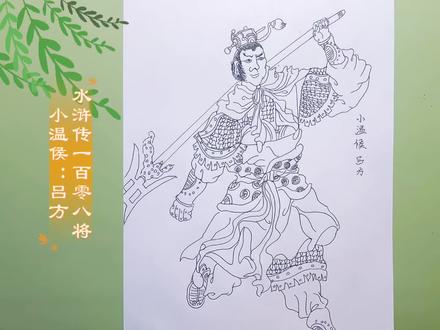 水浒传一百零八将
小温侯：吕方
小温侯 吕方